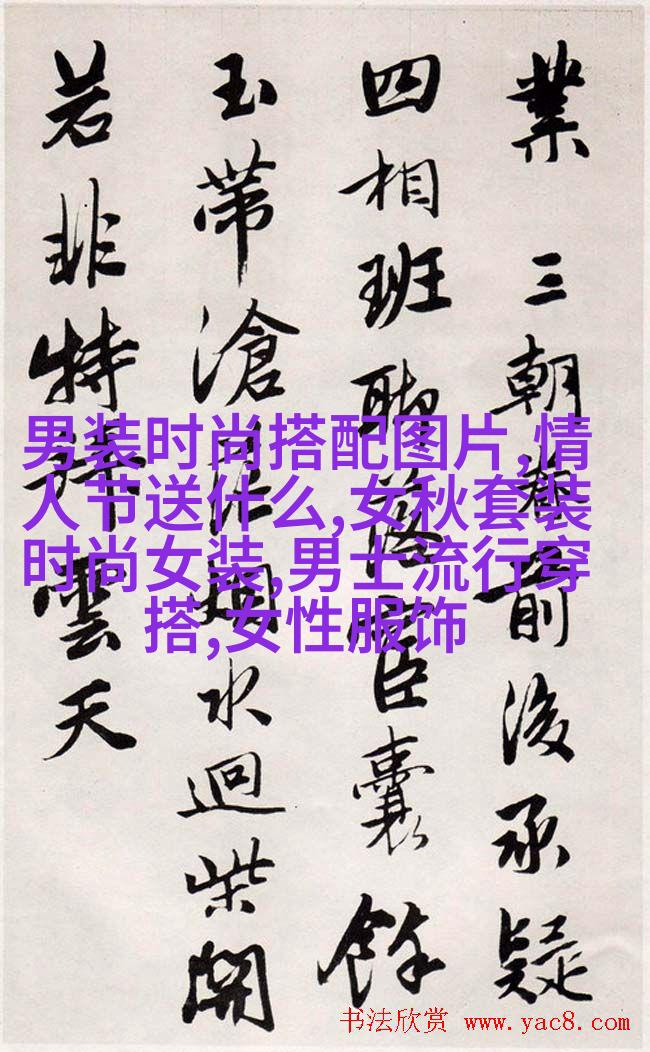 業 三朝前後承疑
四相班聯落宦囊餘
玉帶滄水迴柴開
若非特雲天
男装时尚搭配图片,情
人节送什么,女秋套装
时尚女装,男士流行穿
搭,女性服饰
书法欣赏 www.yac8.com